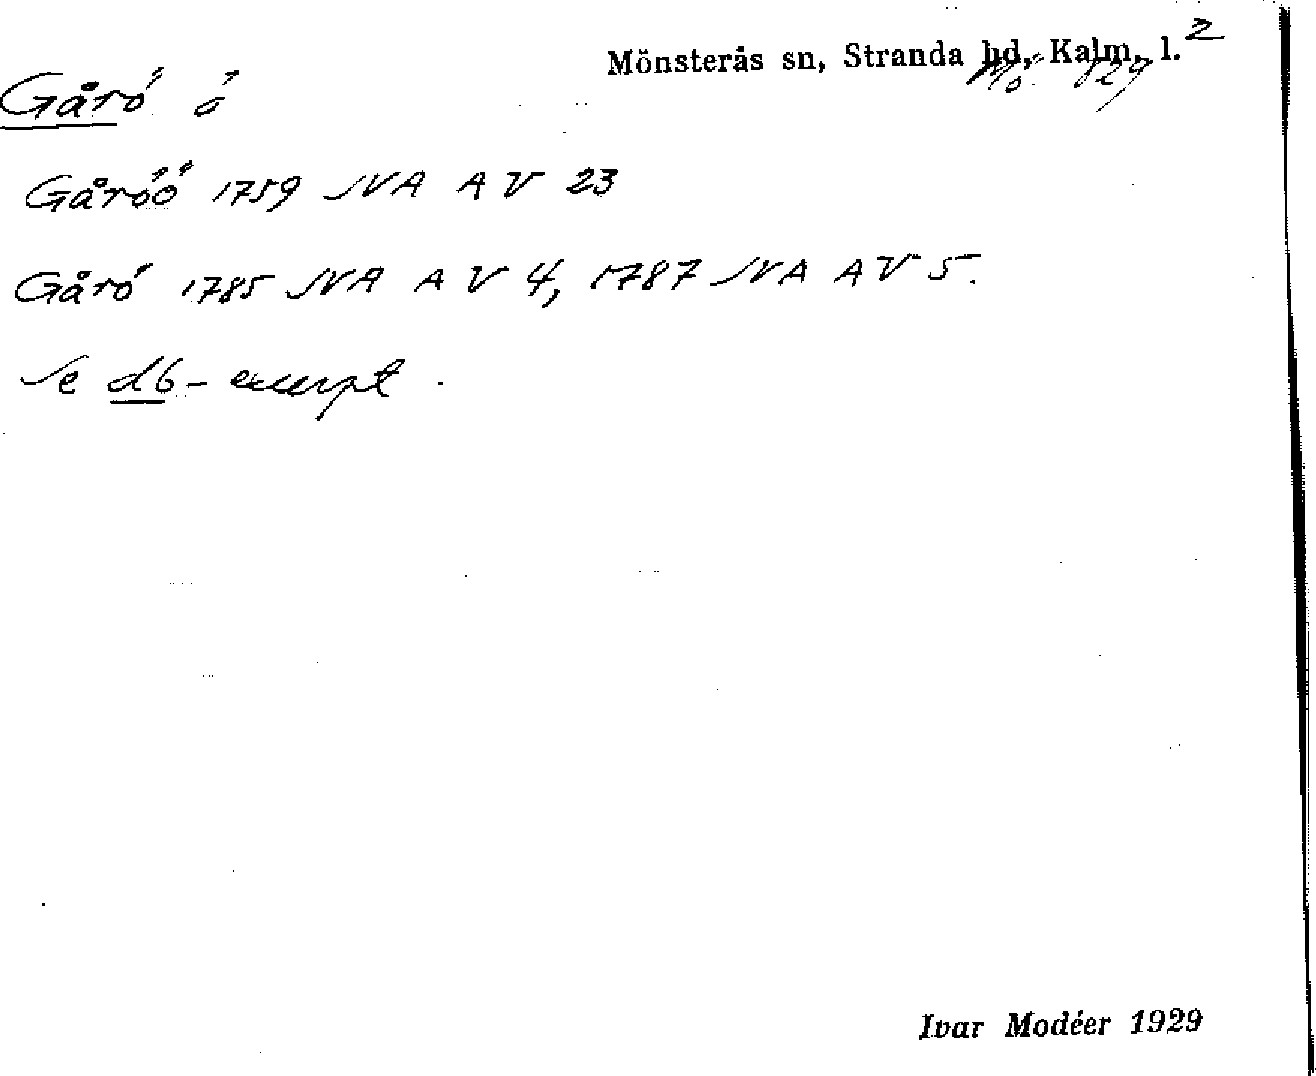 Mönsterås sn, Stranda hd, Kalm. l. 2
Mö. 129
Gårö ö
Gåröö 1759 SVA A V 23
Gårö 1785 SVA A V 4, 1787 SVA A V 5.
Se db-excerpt.
Ivar Modéer 1929